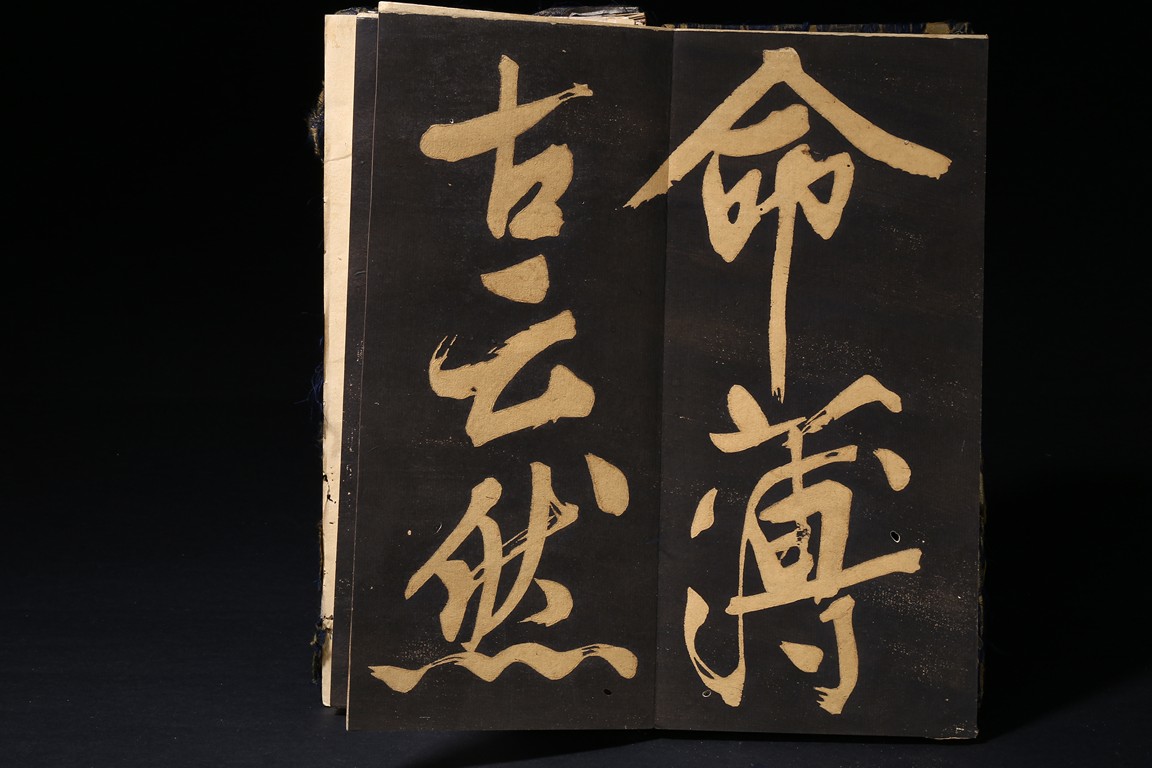 命薄
古云然